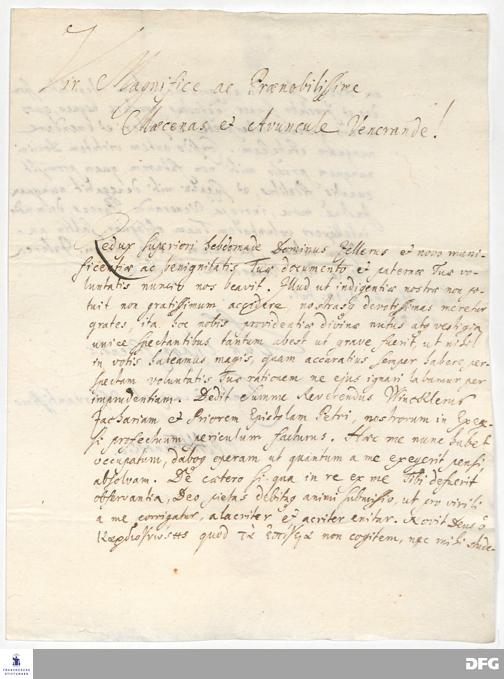 Vir Magnifice ac Prænobilissime
Mæcenas et Avuncule Venerande!
Redux superiori hebdomade Dominus Zellerus et novo muni-
ficentiæ ac benignitatis Tuæ documento et paternæ Tuæ vo-
luntatis nuncio nos beavit. Illud ut indigentiæ nostræ non po-
tuit non gratissimum accidere, nostrasq devotissimas meretur
grates, ita hoc nobis providentiæ divinæ nutus atq vestigia
unice spectantibus tantum abest ut grave fuerit, ut nihil
in votis habeamus magis, quam accuratius semper habere per-
spectam voluntatis Tuæ rationem ne ejus ignari labamur per
imprudentiam. Dedit Summe Reverendus Wincklerus
Zachariam et Priorem Epistolam Petri, nostrorum in Exege-
si profectuum periculum facturus. Hæc me nunc habet
occupatum, daboq operam ut quantum a me exegerit pensi,
absolvam. De cætero si qua in re ex me Tibi desierit
observantia, Deo pietas debitaq animi submissio, ut pro virili
a me corrigatur, alacriter et acriter enitar. Novit Deus ὁ
καρδιογνώστης quod τὰ ἐπίγεια non cogitem, nec mihi stude-
FRANCKESCHE
STIFTUNGEN
DFG